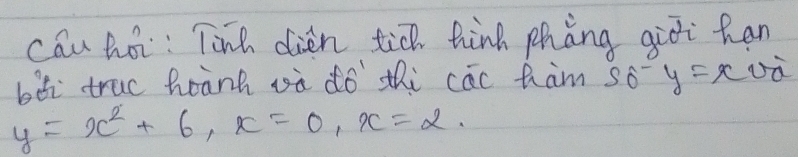 Câu hỏi: Tính diện tích hình phẳng giới hạn
bởi trục hoành và đồ thị các hàm số y = x và
y = x² + 6, x = 0, x = 2.